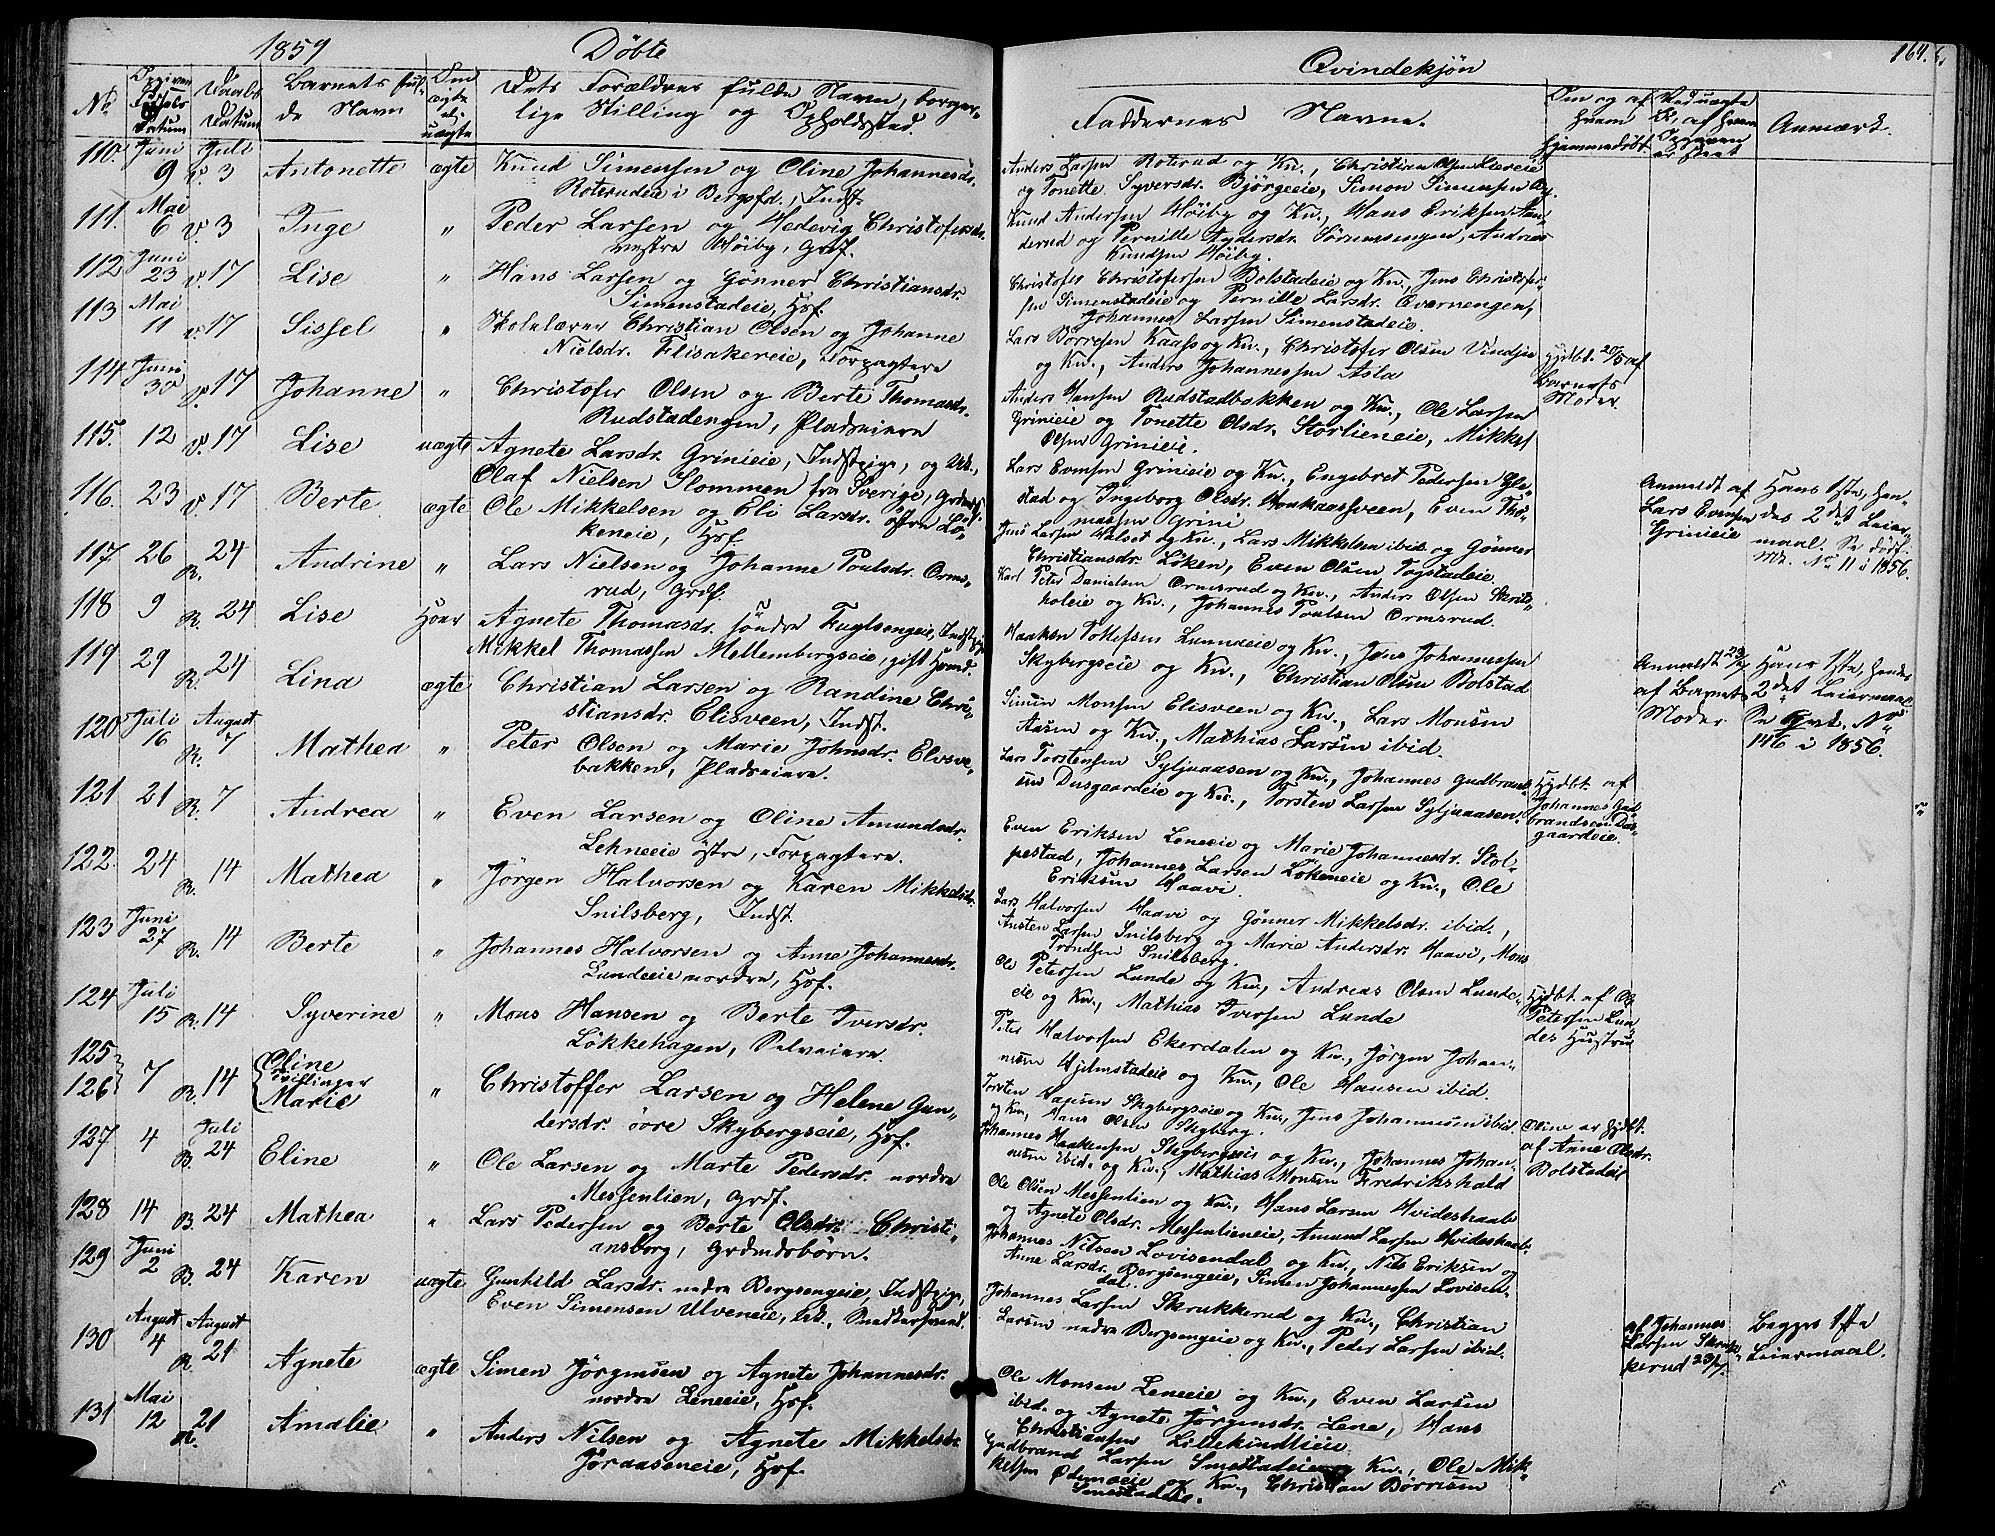 1859 Döbte
Qvindekjön
164.
No
Datum
Daabs Datum
Barnets ful-
de Navn
Om
ægte
el.
uægte
Dets Forældres fulde Navn, borger-
lige Stilling og Opholdssted.
Faddernes Navne.
Om og af
hvem
hjemmedöbt
Ved uægte
af hvem
Anmærk.
110. Juni 9 Juli v. 3 Antonette ægte Knud Simensen og Oline Johannesdr.
Roterudeie i Bergsfd., Indst.
Anders Larsen Roterud og Kv., Christian Olsen Liereie
og Tonette Syversdr. Björgeeie, Simon Simensen
111. Mai 6 v. 3 Inge " Peder Larsen og Hedevig Christofersdr.
vestre Höiby, Grdf.
Knud Andersen Höiby og Kv., Hans Eriksen
derud og Pernille Andersdr. Sörumsengen, Andreas
Knudsen Höiby.
112 Juni 23 v. 17 Lise " Hans Larsen og Gönner Christiansdr.
Simenstadeie, Hsf.
Christofer Christofersen Bolstadeie og Kv., Jens Christofer-
sen Simenstadeie og Pernille Larsdr. Qvernengen,
Johannes Larsen Simenstadeie.
113 Mai 11 v. 17 Sissel " Skolelærer Christian Olsen og Johanne
Nielsdr. Flisakereie, Forpagtere
Lars Börresen Kaass og Kv., Christofer Olsen Vindju
og Kv., Anders Johannessen Asla
Hjdbt. 20/5 af
Barnets
Moder.
114 Juni 30 v. 17 Johanne " Christofer Olsen og Berte Thomasdr.
Rudstadengen, Pladseiere
Anders Hansen Rudstadbakken og Kv., Ole Larsen
Grinieie og Tonette Olsdr. Storlieneie, Mikkel
Olsen Grinieie.
115. 12 v. 17 Lise uægte Agnete Larsdr. Grinieie, Indstpige, og Uk.,
Olaf Nielsen Slommen fra Sverige,
Lars Evensen Grinieie og Kv., Engebret Pedersen Gle-
stad og Ingeborg Olsdr. Haukaasveen, Even Tho-
massen Grini
Anmeldt af
Lars Evensen
Grinieie
Hans 1ste, hen-
des 2det Leier-
maal. Se
No 11 i 1856.
116. 23 v. 17 Berte ægte Ole Mikkelsen og Eli Larsdr. östre Lö-
keneie, Hsf.
Jens Larsen Halset og Kv., Lars Mikkelsen ibid. og Gönner
Christiansdr. Löken, Even Olsen Togstadeie.
117. 26 R. 24 Andrine " Lars Nielsen og Johanne Poulsdr. Orms-
rud, Grdf.
Karl Peter Danielsen Ormsrud og Kv., Anders Olsen Skrits-
holeie og Kv., Johannes Poulsen Ormsrud.
118 9 R. 24 Lise Hoer Agnete Thomasdr. söndre Fuglsengeie, Indstpige
Mikkel Thomassen Mellembergseie, gift Huusmd.
Haaken Tollefsen Lunneeie og Kv., Jens Johannessen
Skybergseie og Kv., Christian Olsen Bolstad
Anmeldt 23/7
af Barnets
Moder
Hans 1ste, hendes
2det Leiermaal
No
146 i 1856.
119 29 R. 24 Lina ægte Christian Larsen og Randine Chri-
stiansdr. Elisveen, Indst.
Simen Monsen Elisveen og Kv., Lars Monsen
Aasen og Kv., Mathias Larsen ibid.
120 Juli 16 August R. 7 Mathea " Peter Olsen og Marie Johnsdr. Elvsve-
bakken, Pladseiere.
Lars Torstensen Syljuaasen og Kv., Johannes Gudbrand-
sen Dusgaardeie og Kv., Torsten Larsen Syljuaasen.
Hjdbt. af
Johannes Gud-
brandsen Dus-
gaardeie.
121 21 R. 7 Andrea " Even Larsen og Oline Amundsdr.
Lehneeie östre, Forpagtere.
Even Eriksen Leneeie og Marie Johannesdr. Stol-
pestad, Johannes Larsen Lökeneie og Kv., Ole
Eriksen Haavi.
122. 24 R. 14 Mathea " Jörgen Halvorsen og Karen Mikkelsdr.
Snilsberg, Indst.
Lars Halvorsen Haavi og Gönner Mikkelsdr. ibid.,
Austen Larsen Snilsberg og Marie Andersdr. Haavi, Mons
Trondsen Snilsberg.
123 Juni 27 R. 14 Berte " Johannes Halvorsen og Anne Johannesdr.
Lundeeie nordre, Hsf.
Ole Petersen Lunde og Kv., Andreas Olsen Lunde-
eie og Kv., Mathias Iversen Lunde
Hjdbt. af Ole
Petersen Lun-
des Hustru
124 Juli 15 R. 14 Syverine " Mons Hansen og Berte Iversdr.
Lökkehagen, Selveiere.
Peter Halvorsen Ekerdalen og Kv., Jörgen Johan-
nesen Hjelmstadeie og Kv., Ole Hansen ibid.
125
126 7 R. 14 Oline
Tvillinger
Marie
" Christoffer Larsen og Helene Gun-
dersdr. övre Skybergseie, Hsf.
Torsten Hansen Skybergseie og Kv., Jens Johannesen ibid.
og Kv., Hans Olsen Skyberg.
Johannes Haakensen Skybergseie og Kv., Johannes Johan-
nesen ibid. og Kv., Mathias Monsen Fredrikshald
Oline er hjdbt.
af Anne Olsdr.
Bolstadeie
127 4 Juli B. 24 Eline " Ole Larsen og Marte Pedersdr. nordre
Messenlien, Grdf.
Ole Olsen Messenlien og Kv., Hans Larsen Hvideskaal
og Agnete Olsdr. Messenlieneie, Amund Larsen Hvideskaal.
128 14 B. 24 Mathea " Lars Pedersen og Berte Olsdr. Christi-
ansborg, Grdmdsbörn.
Johannes Nilsen Lovisendal og Kv., Nils Eriksen og
Anne Larsdr. Bergsengeie, Simen Johannessen Lovisen-
dal.
129 Juni 2 B. 24 Karen uægte Gunhild Larsdr. nedre Bergsengeie, Indstpige,
Even Simensen Ulveneie, Uk., Snedkersvend.
Johannes Larsen Skrukkerud og Kv., Christian
Larsen nedre Bergsengeie og Kv., Peder Larsen ibid.
af Johannes
Larsen Skruk-
kerud 23/7.
Begges 1ste
Leiermaal.
130 August 4 August R. 21 Agnete ægte Simen Jörgensen og Agnete Johannesdr.
nordre Leneeie, Hsf.
Ole Monsen Leneeie og Kv., Even Larsen
ibid. og Agnete Jörgensdr. Lene, Hans
Christiansen Lillekindlieie
131 Mai 12 21 Amalie " Anders Nilsen og Agnete Mikkelsdr.
Jöraaseneie, Hsf.
Gudbrand Larsen Smestadeie og Kv., Ole Mik-
kelsen Ödemoeie og Kv., Christian Börresen
Smestadeie.